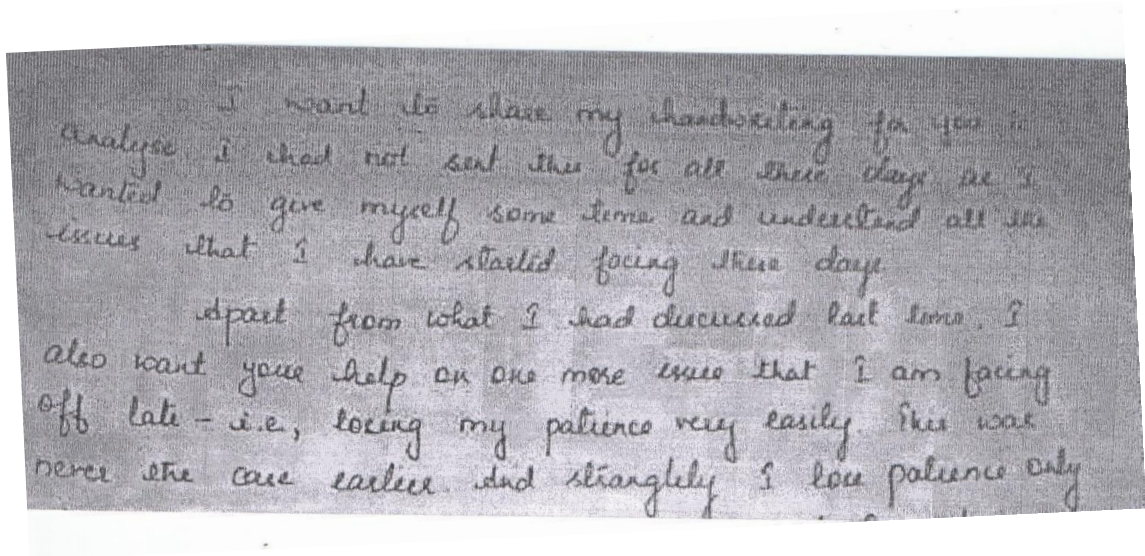 I want to share my handwriting for you to
analyse. I had not sent this for all these days as I
wanted to give myself some time and understand all the
issues that I have started facing these days.
Apart from what I had discussed last time, I
also want your help on one more issue that I am facing
off late - i.e, losing my patience very easily. This was
never the case earlier. And stranglely I lose patience only